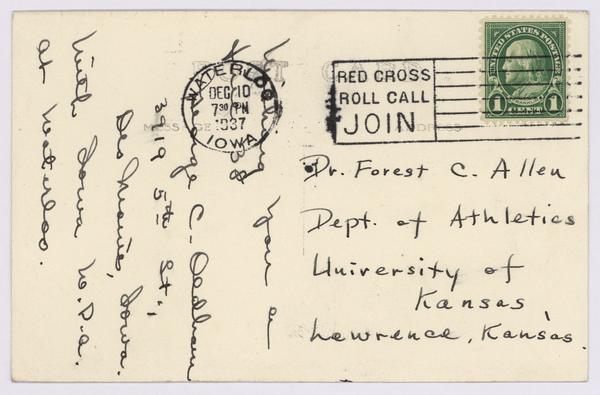 POST CARD
UNITED STATES POSTAGE
1 CENT 1
WATERLOO
DEC 10
7 30 PM
1937
IOWA
RED CROSS
ROLL CALL
JOIN
MESSAGE
ADDRESS
Dr. Forest C. Allen
Dept. of Athletics
University of
Kansas,
Lawrence, Kansas.
Wishing You a
38
George C. Oldham
3919 5th St.,
Des Moines, Iowa.
With Iowa W.P.A.
at Waterloo.